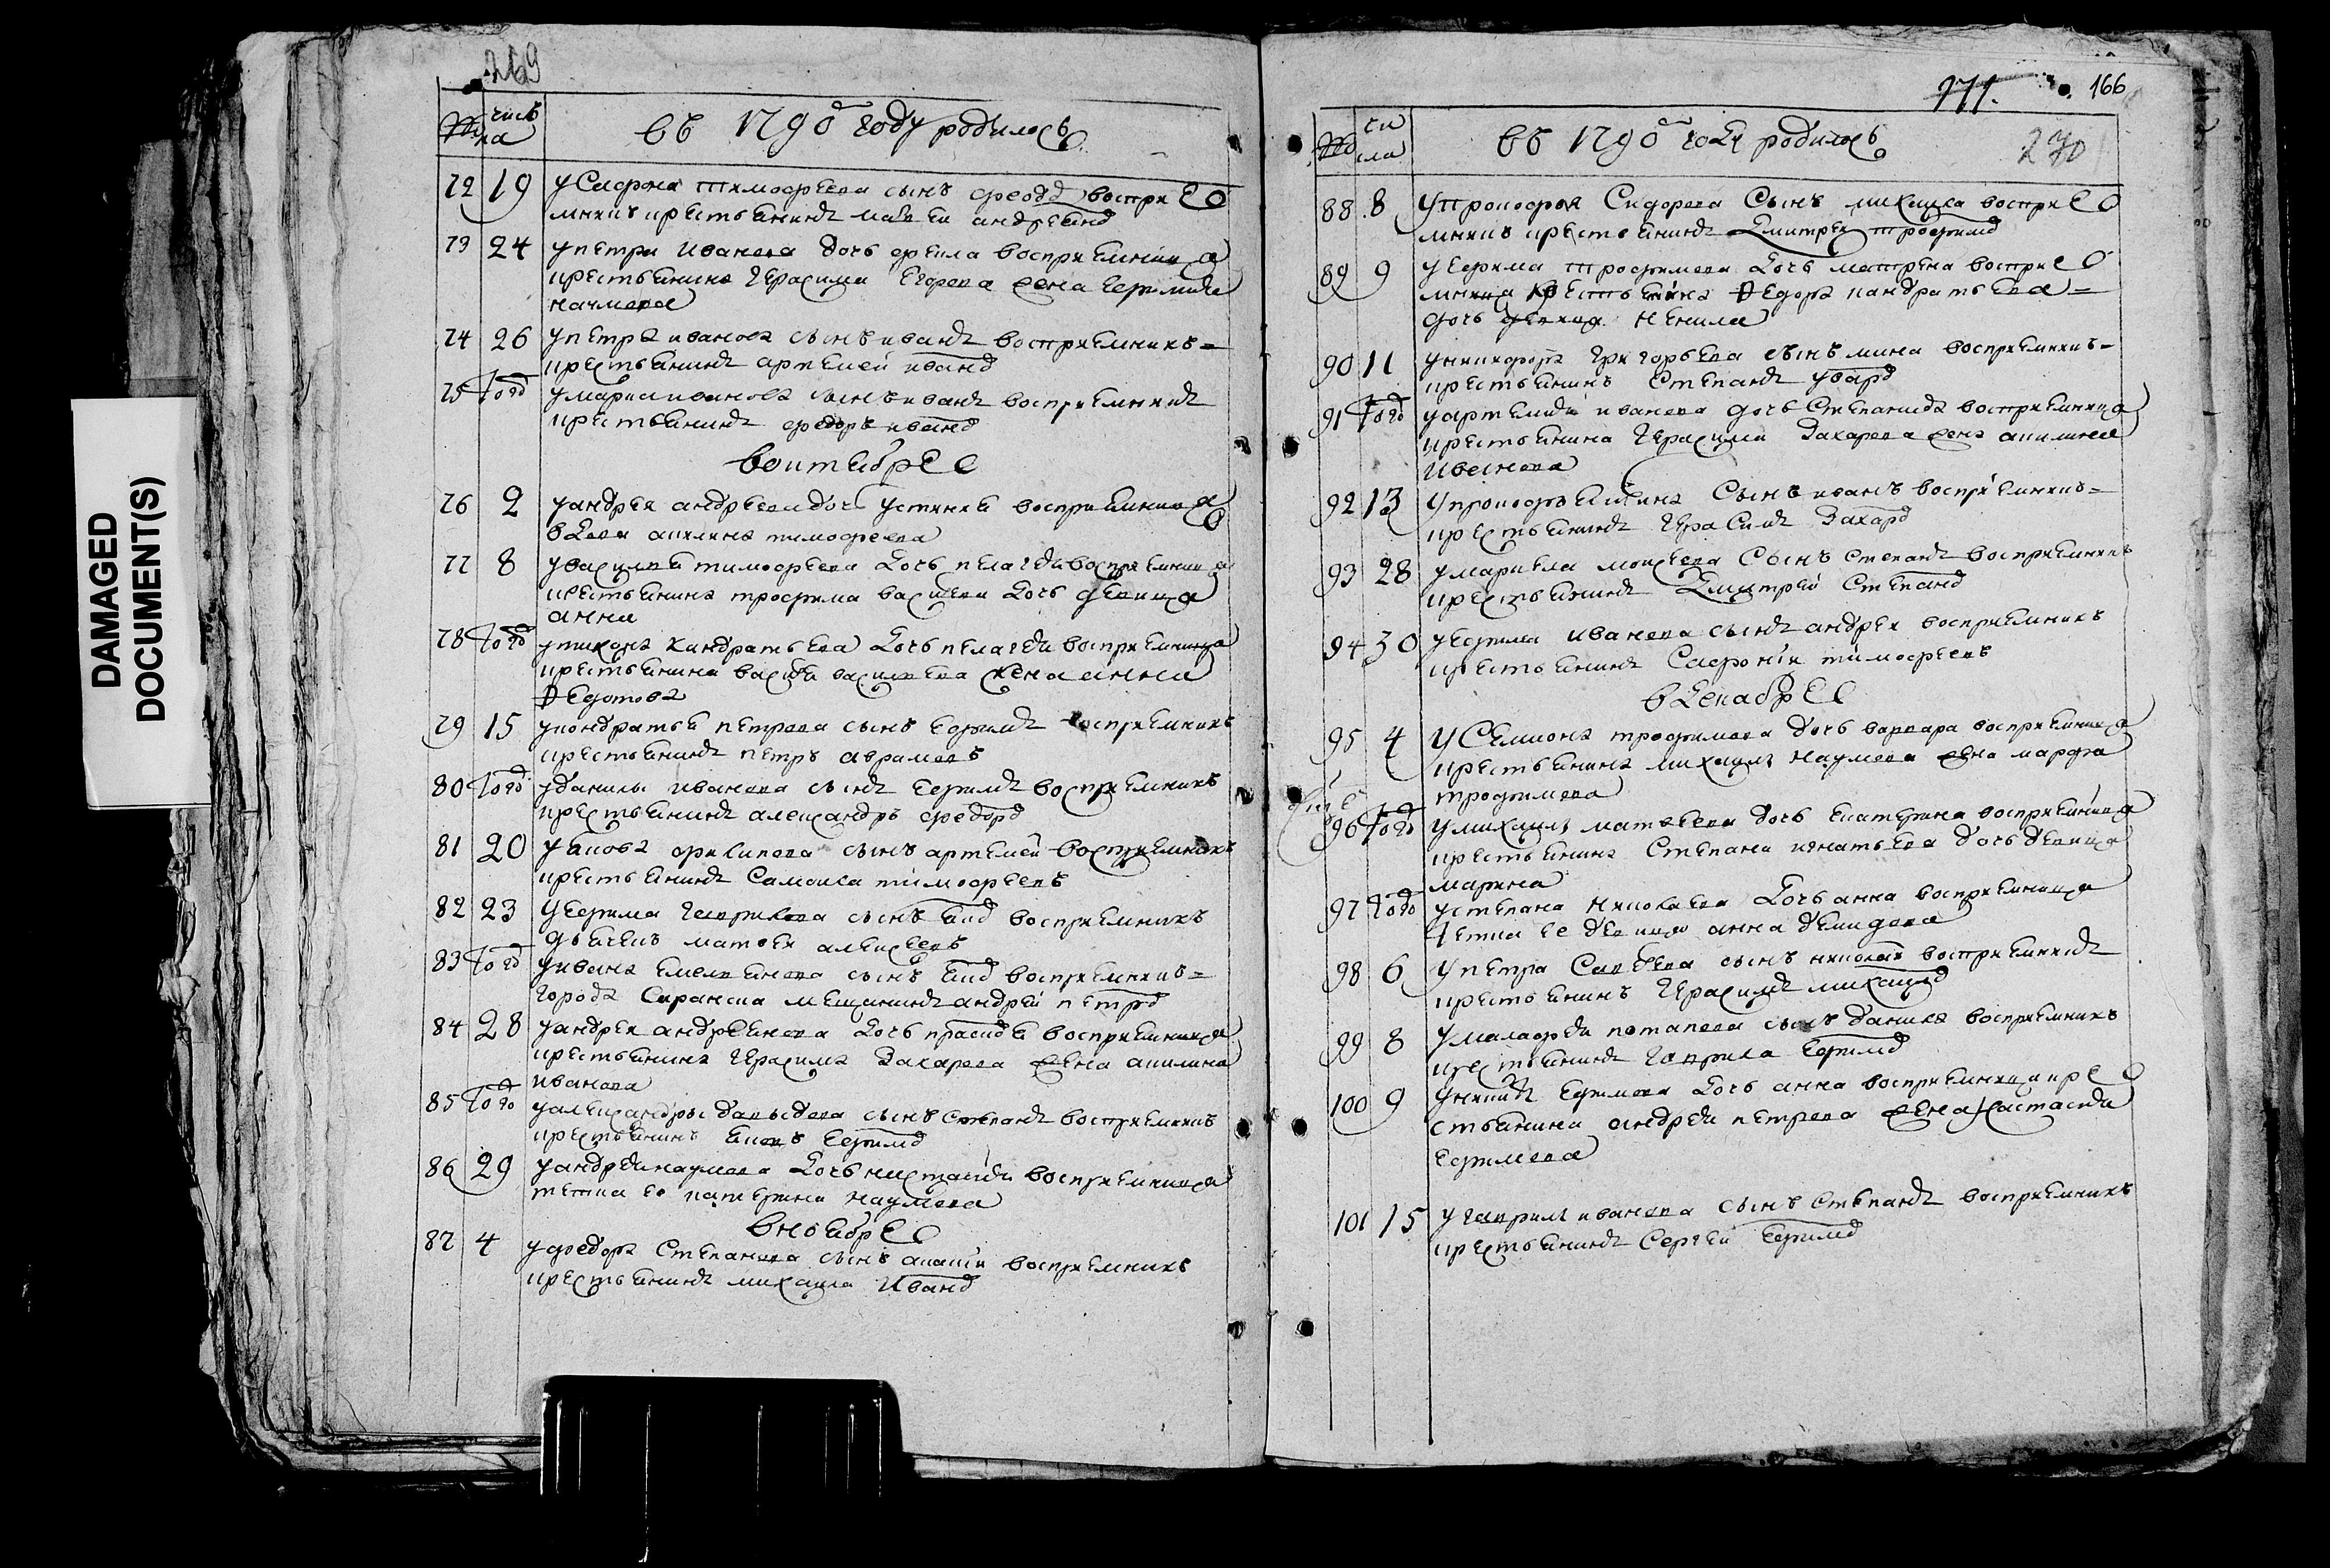 DAMAGED
DOCUMENT(S)
269
№ числа
въ 1790м году родилось
72 19 у Сафрона тимофеева сынъ восприе
мникъ крестьянинъ андреянд
73 24 у петра иванова дочь фекла восприемница
крестьянина герасима Егорова жена
наумова
74 26 у петра иванова сынъ иванъ восприемникъ=
крестьянинъ артемей иванд
75 тогд у марки иванова сынъ иванъ восприемникъ
крестьянинъ федоръ иванд
воктябре
76 2 у андрея андреева дочь устиния восприемница
вдова акилина тимофеева
77 8 у василья тимофеева дочь пелагея восприемница
крестьянина трофима васильева дочь девица
анна
78 тогд у тихона кандратьева дочь пелагея восприемница
крестьянина василья васильева жена анна
Федотова
79 15 у кондратья петрова сынъ ефимъ восприемникъ
крестьянинъ петръ аврамовъ
80 тогд у данилы иванова сынъ ефимъ восприемникъ
крестьянинъ александръ федорд
81 20 у якова сынъ артемей восприемникъ
крестьянинъ Самойла тимофеевъ
82 23 у ефима гаврилова сынъ восприемникъ
дьячекъ матвей алексеевъ
83 тогд у ивана емельянова сынъ восприемникъ=
города Саранска мещанинъ андрей петрд
84 28 у андрея андреянова дочь восприемница
крестьянина герасима Захарова жена акилина
иванова
85 тогд у александры давыдова сынъ степанъ восприемникъ
крестьянинъ яковъ ефимд
86 29 у андрея наумова дочь настасья восприемница
тетка ее катерина наумова
вноябре
87 4 у федора Степанова сынъ восприемникъ
крестьянинъ михайла Иванд
271. 166
№ числа
въ 1790м году родилось
270
88 8 у прокофья Сидорова Сынъ восприе
мникъ крестьянинъ Дмитрей трофимд
89 9 у ефима трофимова дочь матрена восприе
мница крестьянина Федора кандратьева=
дочь девица ненила
90 11 у никифора григорьева сынъ мина восприемникъ=
крестьянинъ Степанъ увард
91 тогд у артемья иванова дочь Степанида восприемница
крестьянина герасима Захарова жена акилина
Иванова
92 13 у прокофья Сынъ иванъ восприемникъ=
крестьянинъ гераСимъ Захард
93 28 у маркела моисеева Сынъ степанъ восприемникъ
крестьянинъ Дмитрей Степанд
94 30 у ефима иванова сынъ андрей восприемникъ
крестьянинъ Сафроний тимофеевъ
вДекабре
95 4 у Семиона трофимова дочь варвара восприемница
крестьянина михайлы наумова жена марфа
трофимова
96 тогд у михайлы матвеева дочь екатерина восприемница
крестьянина Степана игнатьева дочь девица
марина
97 тогд у степана николаева дочь анна восприемница
тетка ее девица анна демидова
98 6 у петра Савельева сынъ николай восприемникъ
крестьянинъ герасимъ михайлд
99 8 у малафея потапова сынъ данила восприемникъ
крестьянинъ гаврила ефимд
100 9 у никиты ефимова дочь анна восприемница кре
стьянина андрея петрова жена настасья
ефимова
101 15 у гаврилы иванова сынъ Степанъ восприемникъ
крестьянинъ Сергей ефимд